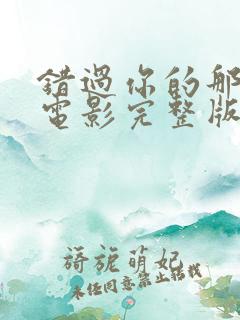 錯過你的那
電影完整版
旖旎萌妃
未经同意禁止转载